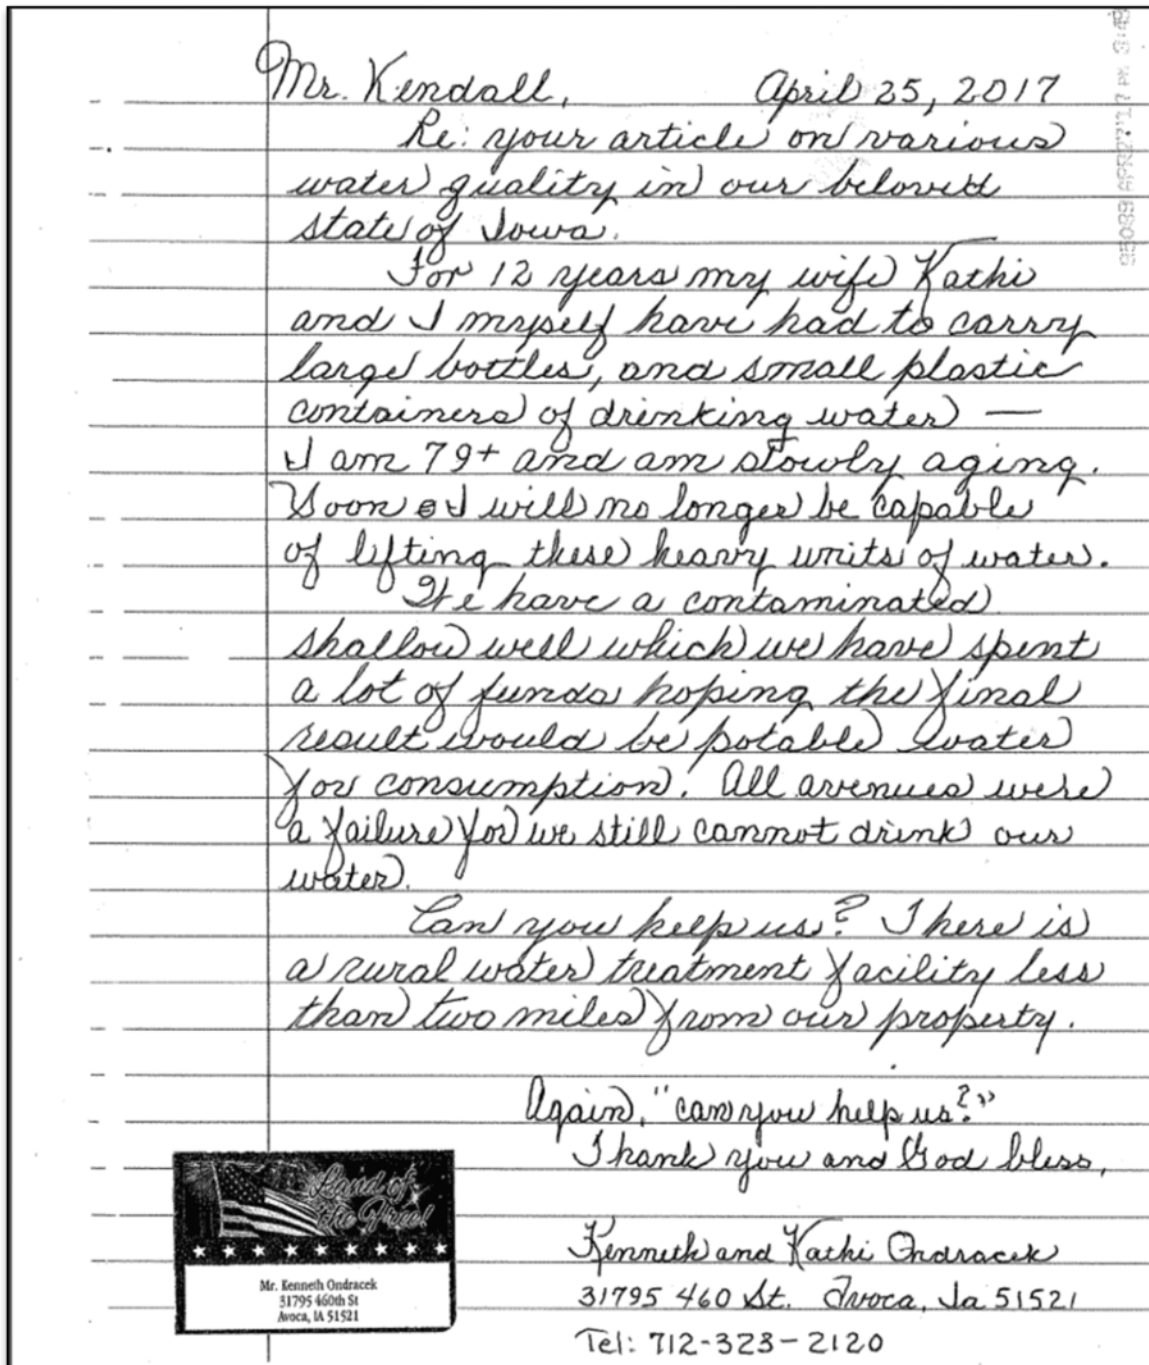 Mr. Kendall, April 25, 2017
Re: your article on various
water quality in our beloved
state of Iowa.
For 12 years my wife Kathi
and I myself have had to carry
large bottles, and small plastic
containers of drinking water —
I am 79+ and am slowly aging.
Soon I will no longer be capable
of lifting these heavy units of water.
We have a contaminated
shallow well which we have spent
a lot of funds hoping the final
result would be potable water
for consumption. All avenues were
a failure for we still cannot drink our
water.
Can you help us? There is
a rural water treatment facility less
than two miles from our property.
Again, "can you help us?"
Thank you and God bless,
Kenneth and Kathi Ondracek
31795 460 St. Avoca, Ia 51521
Tel: 712-323-2120
Land of
the Free!
Mr. Kenneth Ondracek
31795 460th St
Avoca, IA 51521